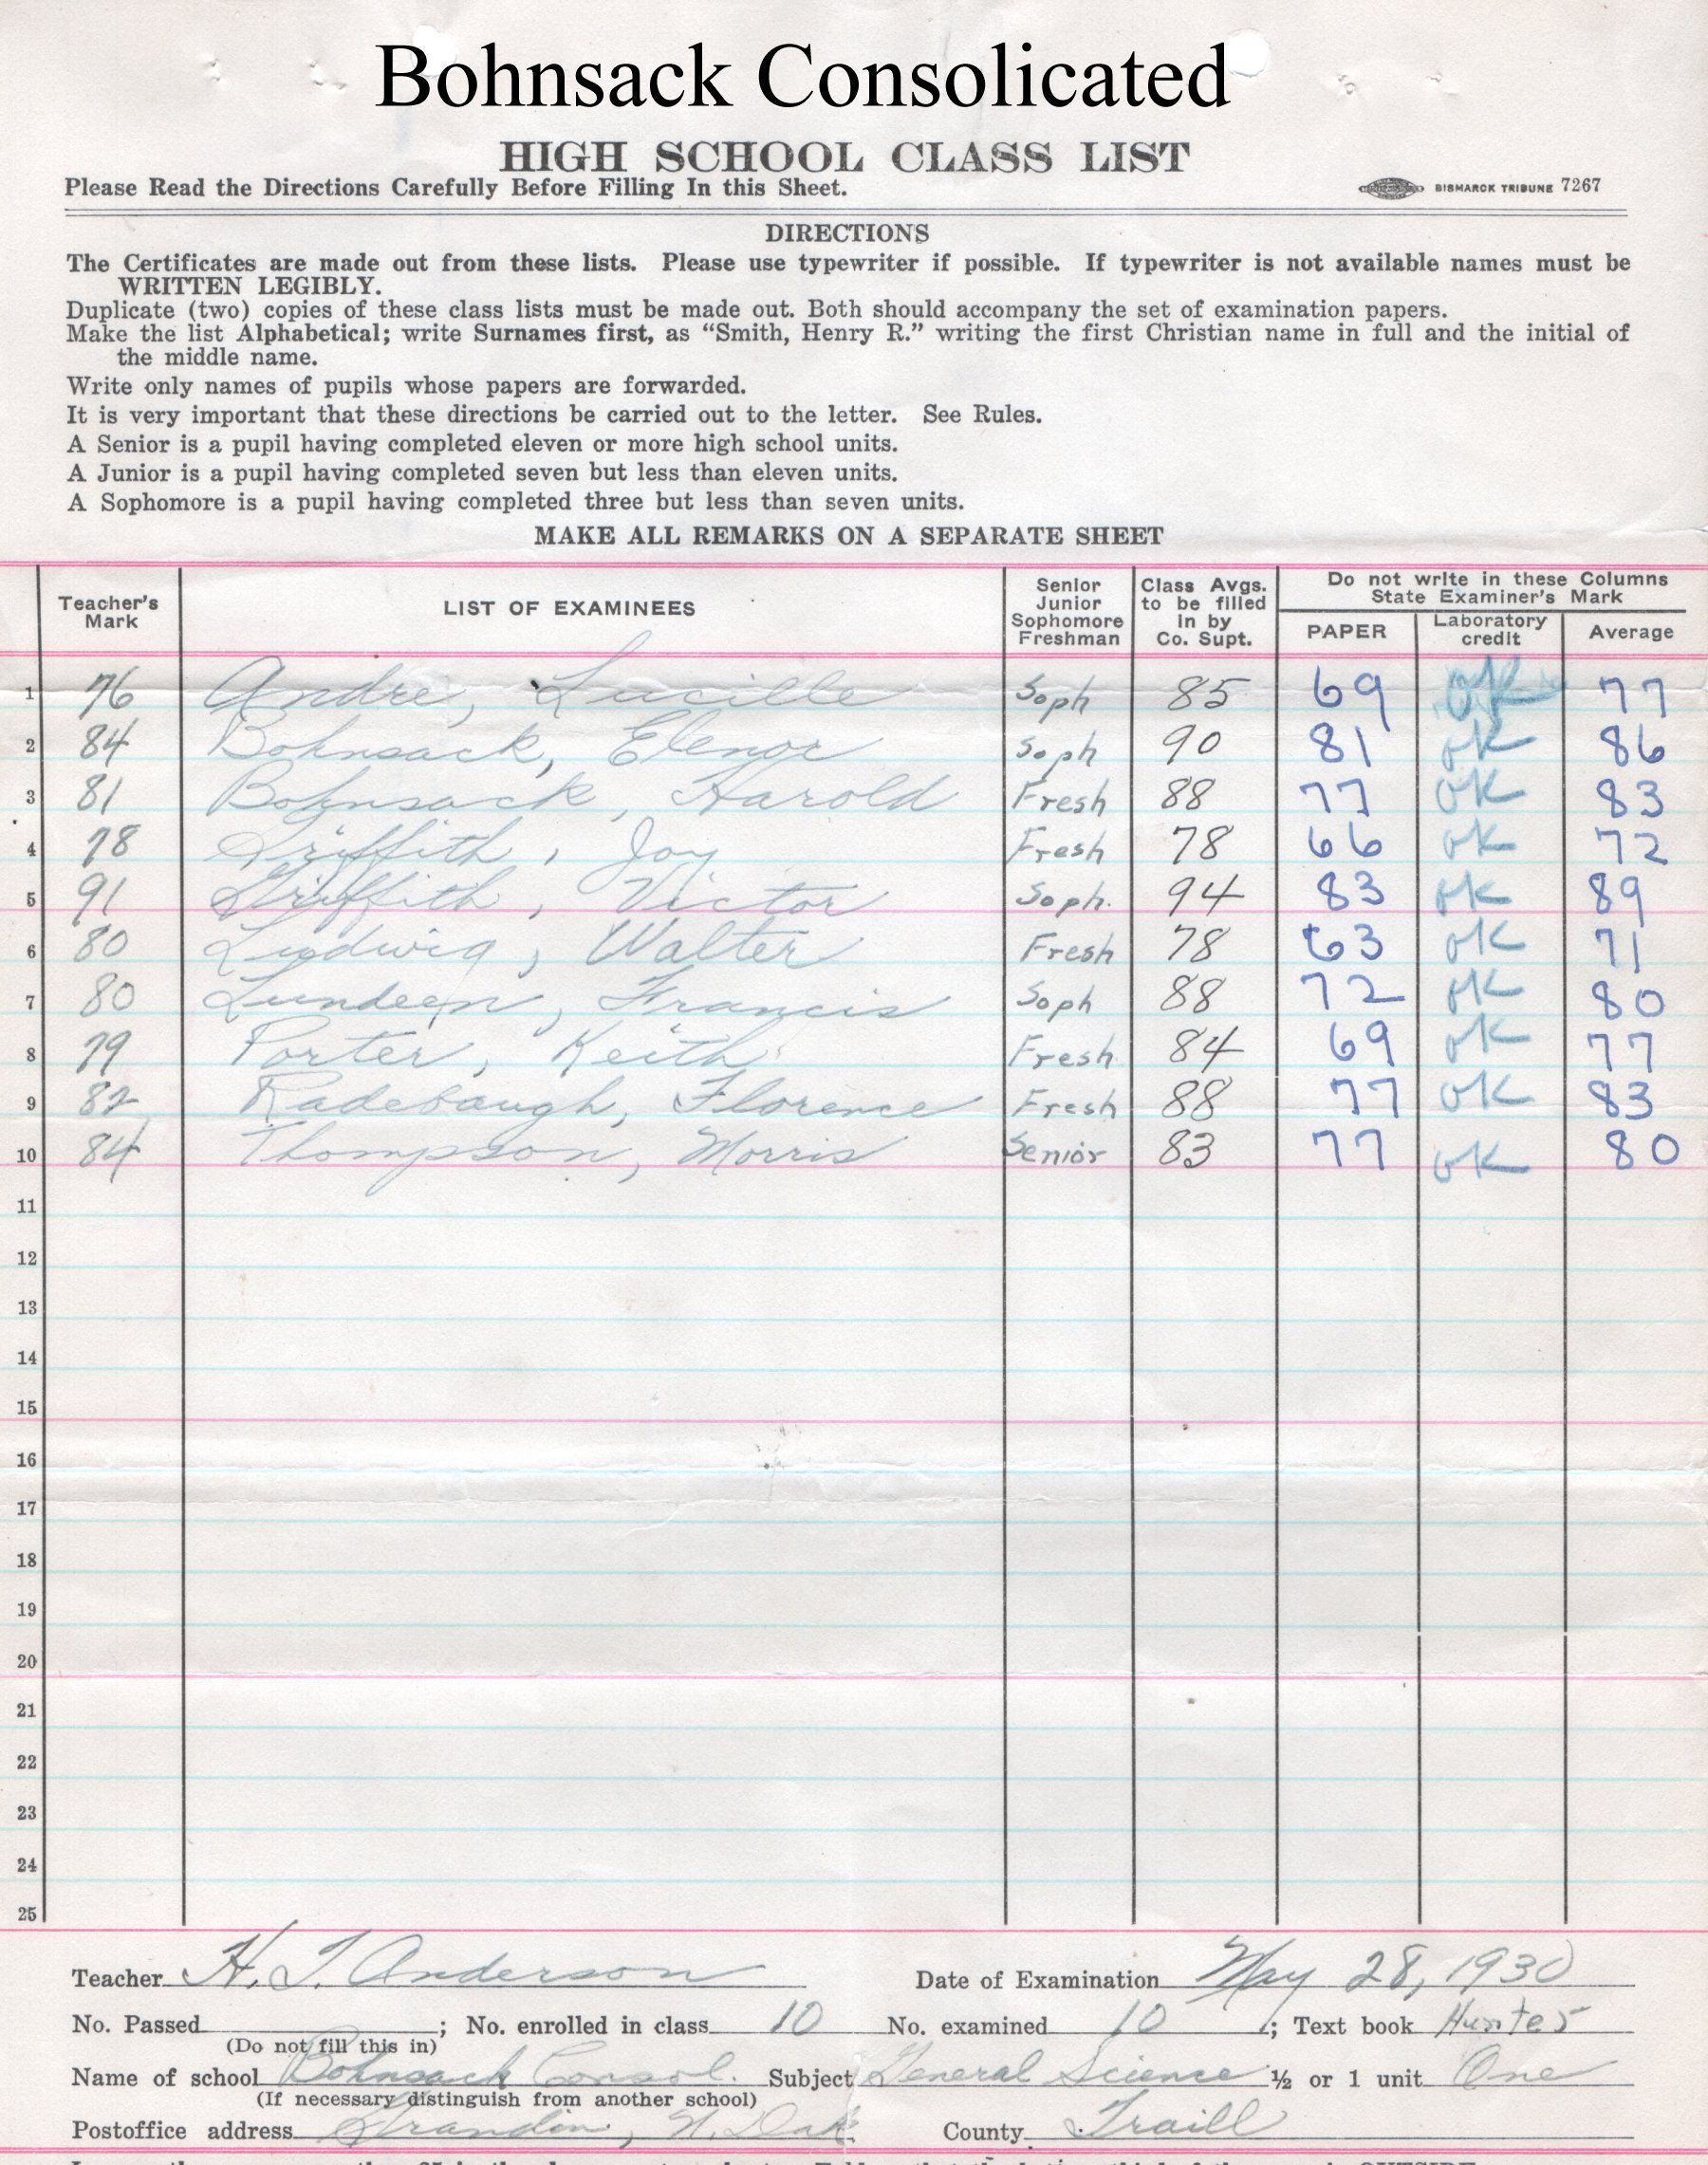 Bohnsack Consolicated
HIGH SCHOOL CLASS LIST
Please Read the Directions Carefully Before Filling In this Sheet. BISMARCK TRIBUNE 7267
DIRECTIONS
The Certificates are made out from these lists. Please use typewriter if possible. If typewriter is not available names must be
WRITTEN LEGIBLY.
Duplicate (two) copies of these class lists must be made out. Both should accompany the set of examination papers.
Make the list Alphabetical; write Surnames first, as “Smith, Henry R.” writing the first Christian name in full and the initial of
the middle name.
Write only names of pupils whose papers are forwarded.
It is very important that these directions be carried out to the letter. See Rules.
A Senior is a pupil having completed eleven or more high school units.
A Junior is a pupil having completed seven but less than eleven units.
A Sophomore is a pupil having completed three but less than seven units.
MAKE ALL REMARKS ON A SEPARATE SHEET
Teacher's Mark LIST OF EXAMINEES Senior Junior Sophomore Freshman Class Avgs. to be filled in by Co. Supt. Do not write in these Columns State Examiner's Mark PAPER Laboratory credit Average
1 76 Andre, Lucille Soph 85 69 OK 77
2 84 Bohnsack, Elenor Soph 90 81 OK 86
3 81 Bohnsack, Harold Fresh 88 77 OK 83
4 78 Griffith, Joy Fresh 78 66 OK 72
5 91 Griffith, Victor Soph. 94 83 OK 89
6 80 Ludwig, Walter Fresh 78 63 OK 71
7 80 Lundeen, Francis Soph 88 72 OK 80
8 79 Porter, Keith Fresh 84 69 OK 77
9 82 Radebaugh, Florence Fresh 88 77 OK 83
10 84 Thompson, Morris Senior 83 77 OK 80
11
12
13
14
15
16
17
18
19
20
21
22
23
24
25
Teacher H. T. Anderson Date of Examination May 28, 1930
No. Passed ; No. enrolled in class 10 No. examined 10 ; Text book Hunter
(Do not fill this in)
Name of school Bohnsack Consol. Subject General Science ½ or 1 unit One
(If necessary distinguish from another school)
Postoffice address Grandin, N. Dak. County Traill